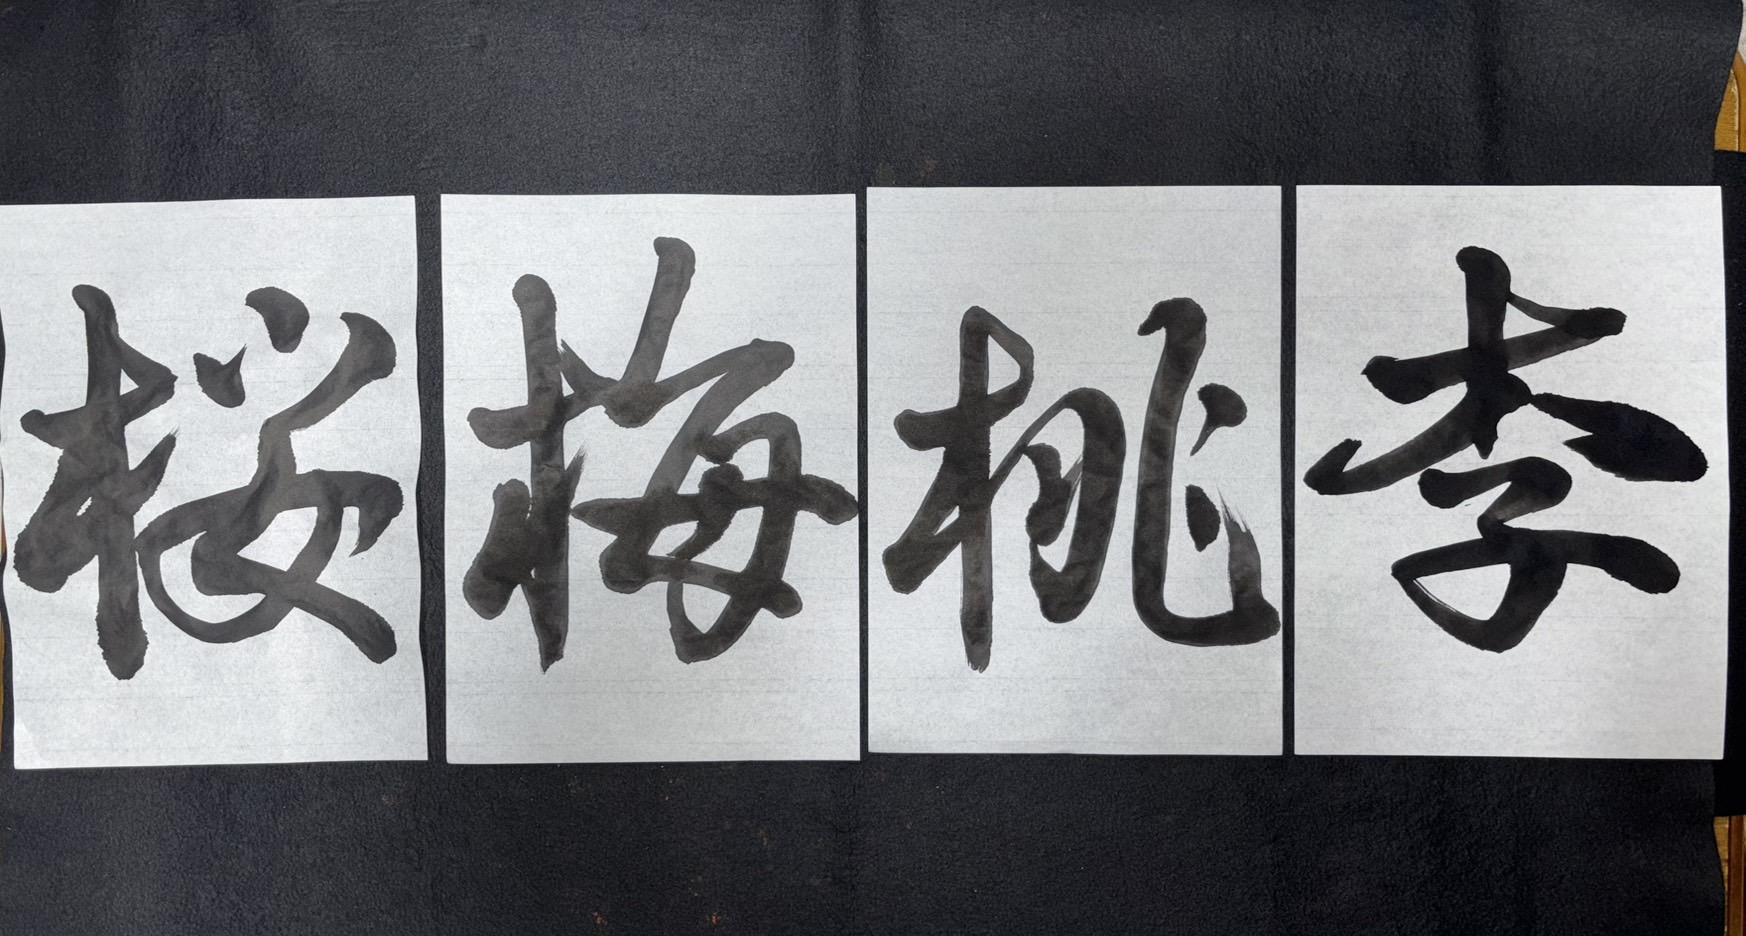 桜梅桃李